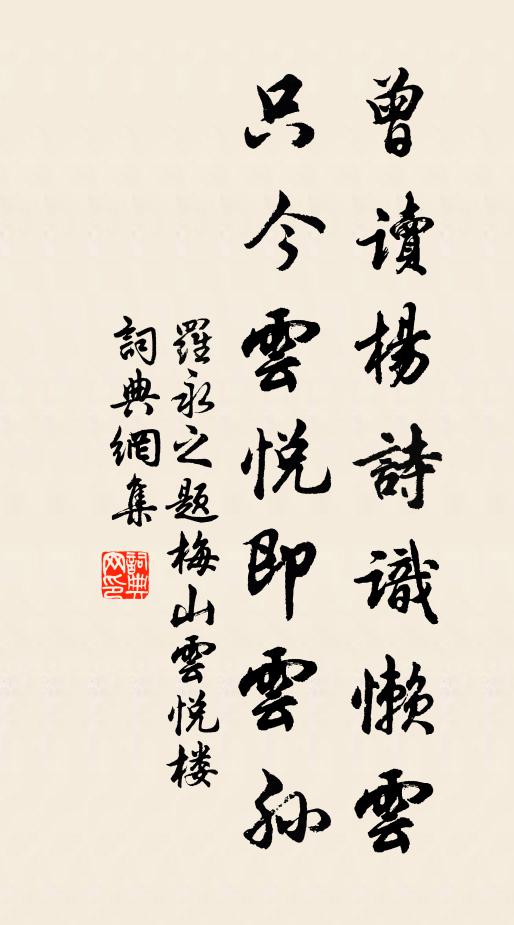 曾讀楊詩識懶雲
只今雲悅即雲孫
羅永之題梅山雲悅楼
詞典網集
詞典网印